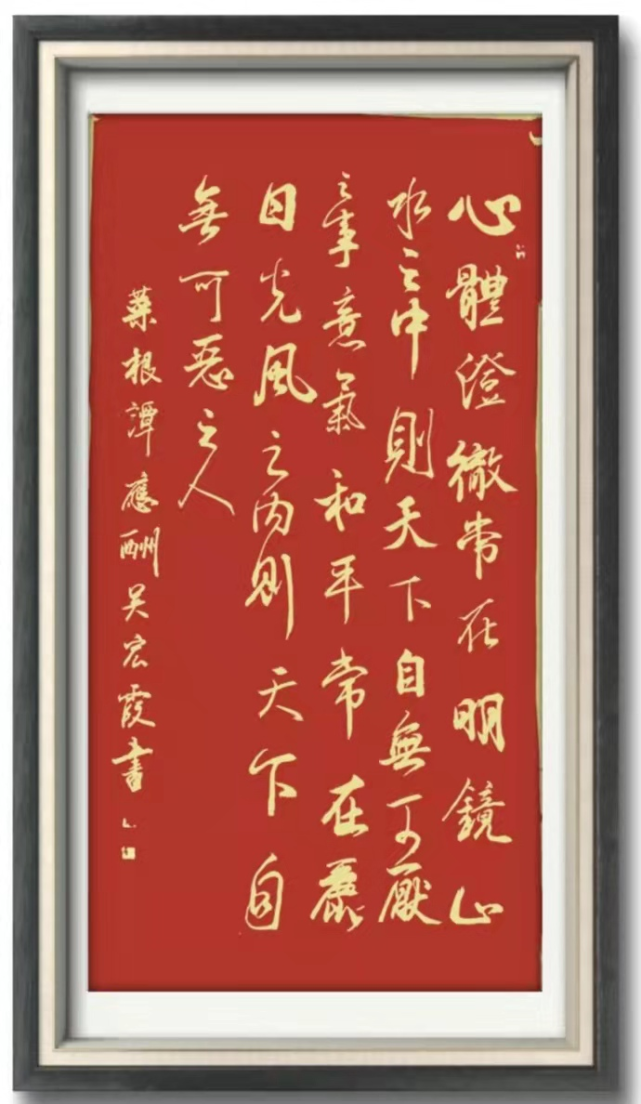 心體澄徹常在明鏡止
水之中則天下自無可厭
之事意氣和平常在麗
日光風之内則天下自
無可惡之人
菜根譚應酬吴宏霞書